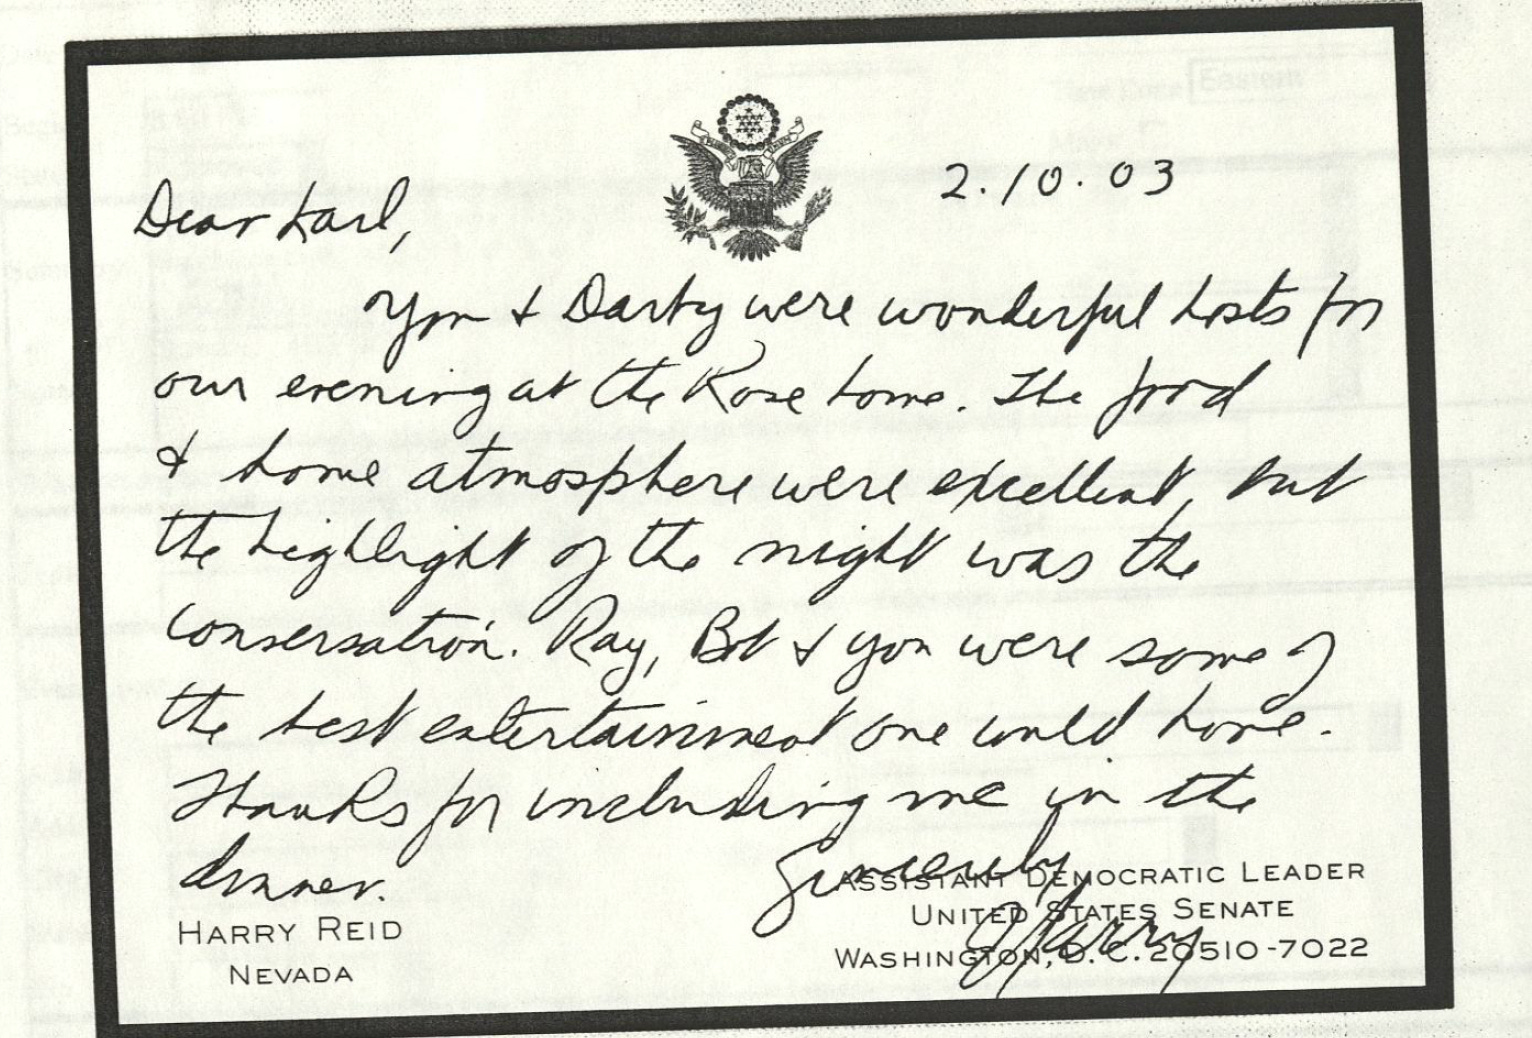 2.10.03
Dear Karl,
You & Darby were wonderful hosts for
our evening at the Rove home. The food
& home atmosphere were excellent, but
the highlight of the night was the
conversation. Ray, Bob & you were some of
the best entertainment one could have.
Thanks for including me in the
dinner.
Sincerely
Harry
HARRY REID
NEVADA
ASSISTANT DEMOCRATIC LEADER
UNITED STATES SENATE
WASHINGTON, D.C. 20510-7022
Eastern